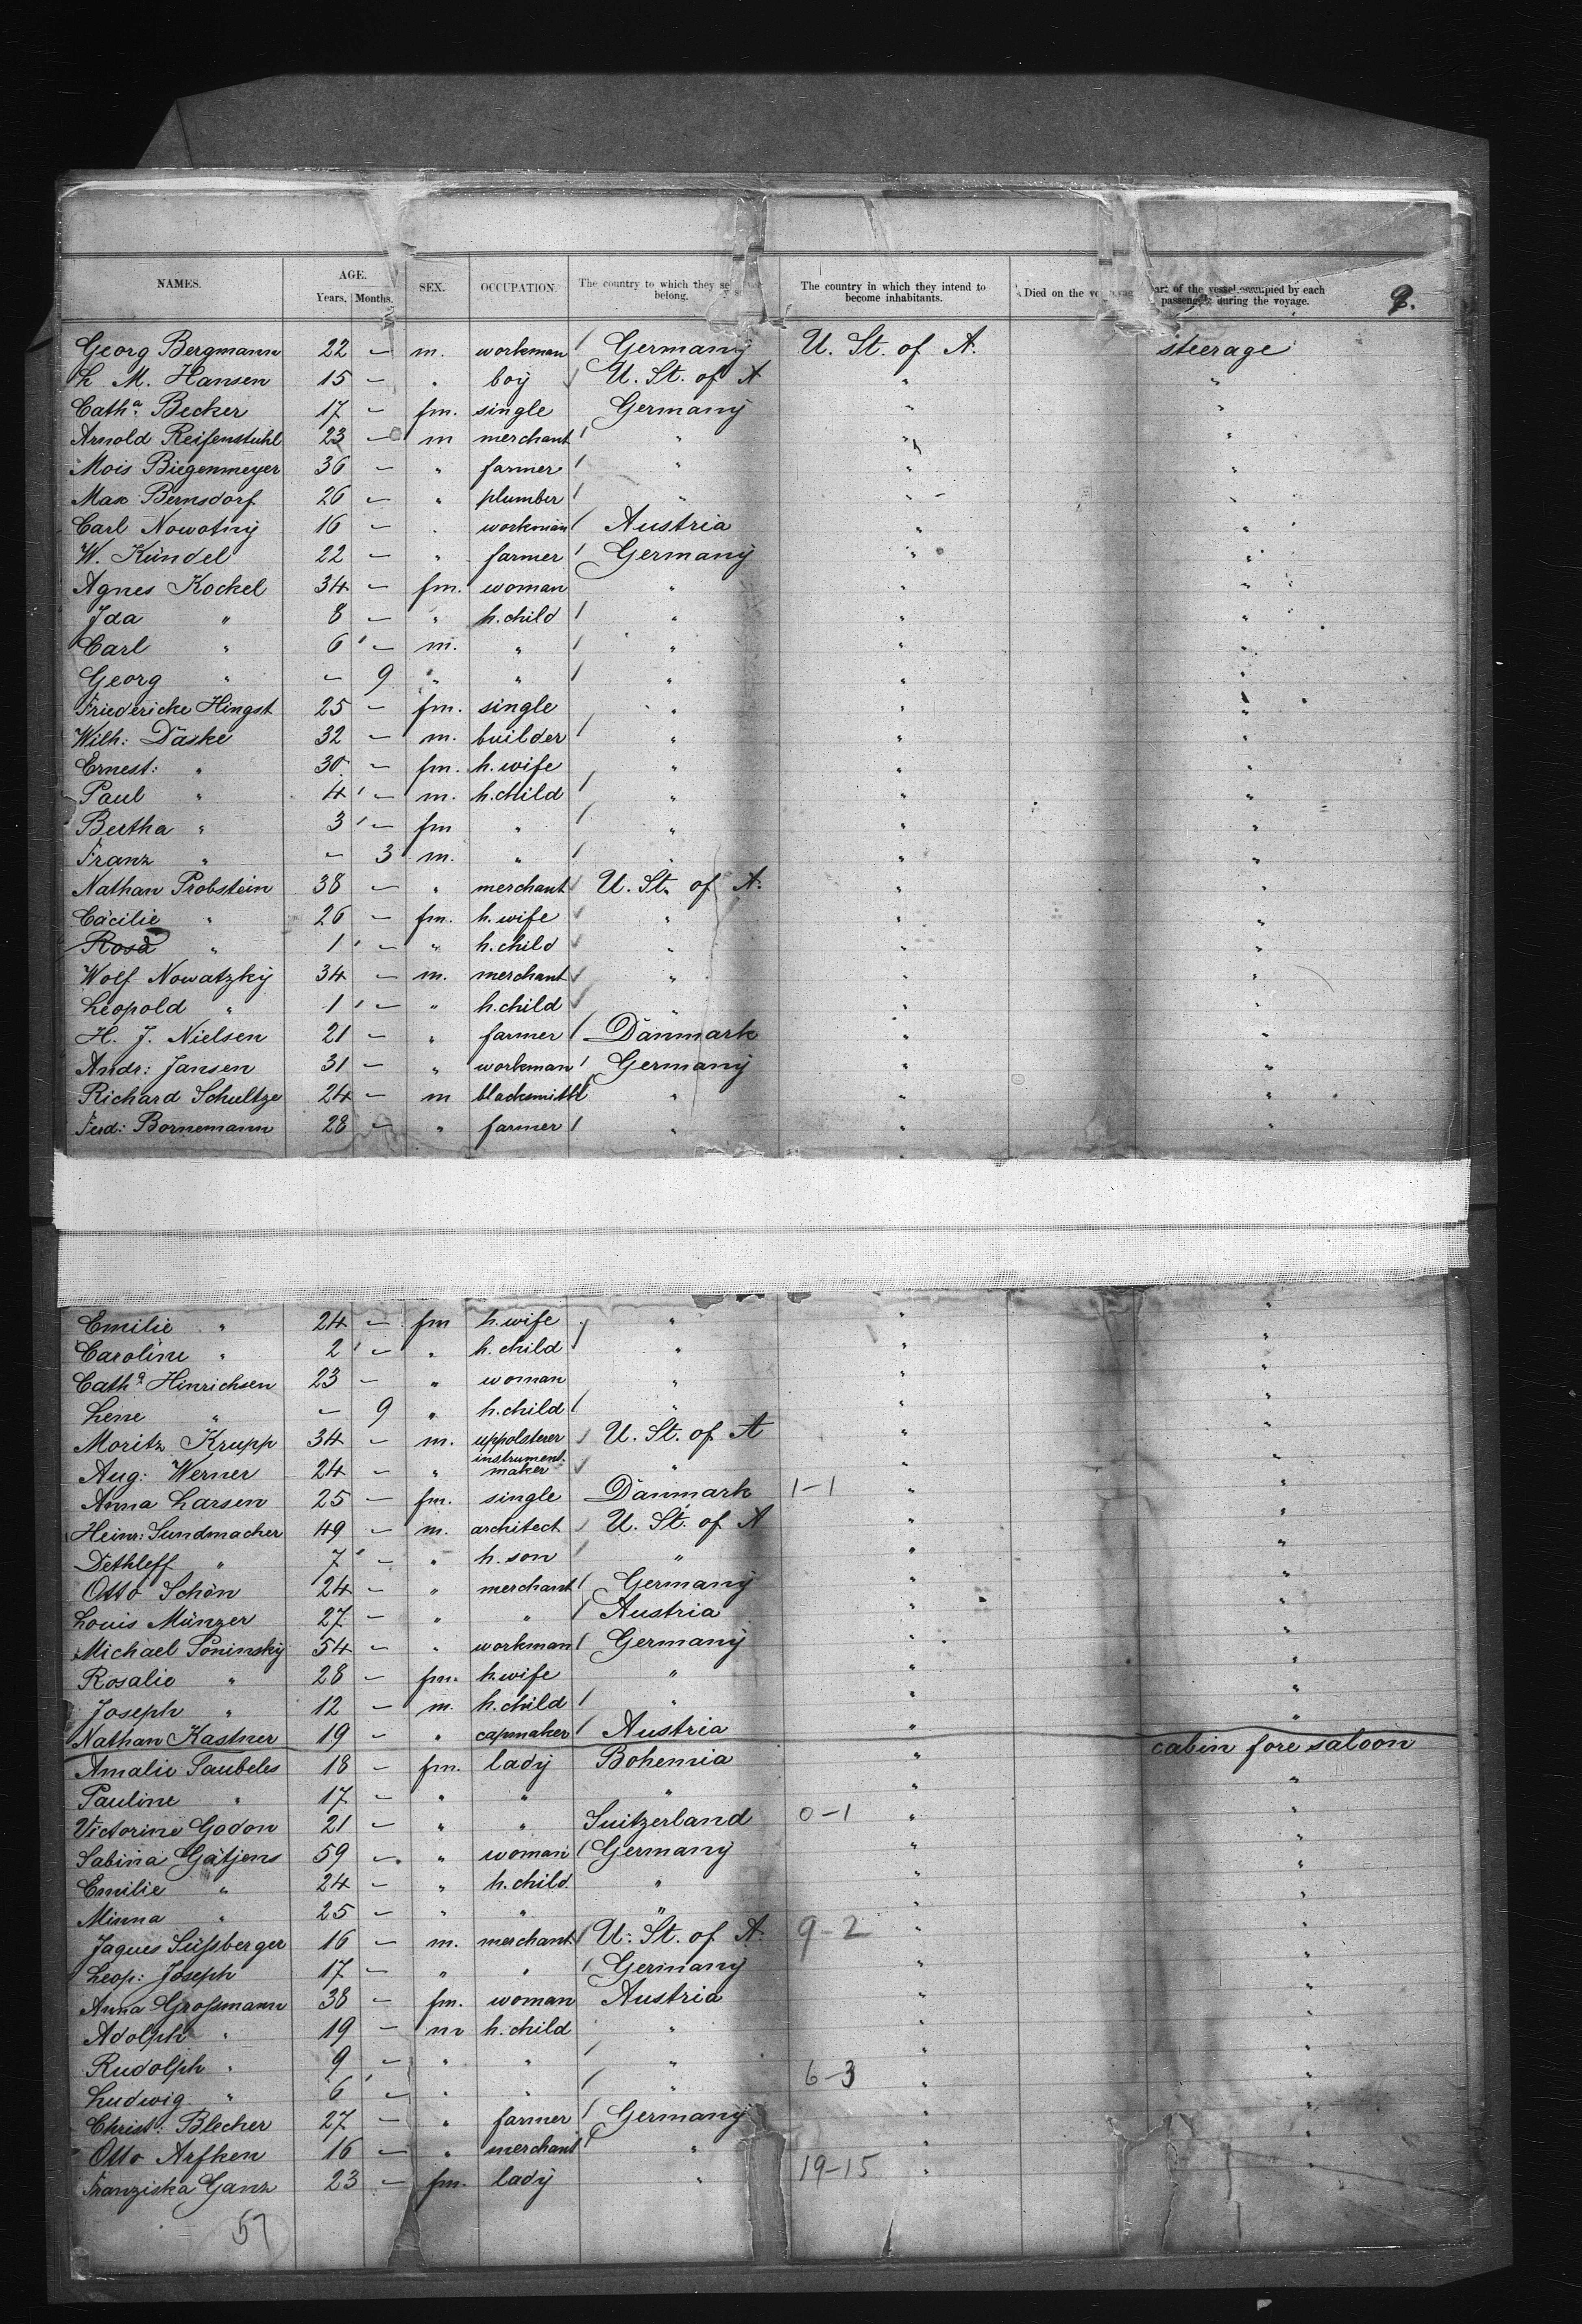 NAMES. AGE. SEX. OCCUPATION. The country to which they belong. The country in which they intend to become inhabitants. Died on the voyage Part of the vessel occupied by each passenger during the voyage. 9.
Years. Months.
Georg Bergmann 22 — m. workman Germany U. St. of A. steerage
L. M. Hansen 15 — " boy U. St. of A " "
Cath.a Becker 17 — fm. single Germany " "
Arnold Reifenstuhl 23 — m merchant " " "
Mois Biegenmeyer 36 — " farmer " " "
Max Bernsdorf 26 — " plumber " " "
Carl Nowotny 16 — " workman Austria " "
W. Kündel 22 — " farmer Germany " "
Agnes Kockel 34 — fm. woman " " "
Ida " 8 — " h. child " " "
Carl " 6 — m. " " " "
Georg " — 9 " " " " "
Friedericke Hingst 25 — fm. single " " "
Wilh: Däske 32 — m. builder " " "
Ernest: " 30 — fm. h. wife " " "
Paul " 4 — m. h. child " " "
Bertha " 3 — fm " " " "
Franz " — 3 m. " " " "
Nathan Probstein 38 — " merchant U. St. of A. " "
Cäcilie " 26 — fm. h. wife " " "
Rosa " 1 — " h. child " " "
Wolf Nowatzky 34 — m. merchant " " "
Leopold " 1 — " h. child " " "
H. J. Nielsen 21 — " farmer Dänmark " "
Andr: Jansen 31 — " workman Germany " "
Richard Schultze 24 — m blacksmith " " "
Ferd: Bornemann 28 — " farmer " " "
Emilie " 24 — fm h. wife " " "
Caroline " 2 — " h. child " " "
Cath.a Hinrichsen 23 — " woman " " "
Lene " — 9 " h. child " " "
Moritz Krupp 34 — m. uppolsterer U. St. of A " "
Aug: Werner 24 — " instrument maker " " "
Anna Larsen 25 — fm. single Dänmark 1-1 " "
Heinr: Sundmacher 49 — m. architect U. St. of A " "
Dethleff " 7 — " h. son " " "
Otto Schön 24 — " merchant Germany " "
Louis Münzer 27 — " " Austria " "
Michael Soninsky 54 — " workman Germany " "
Rosalie " 28 — fm. h. wife " " "
Joseph " 12 — m. h. child " " "
Nathan Kastner 19 — " capmaker Austria " "
Amalie Taubeles 18 — fm. lady Bohemia " cabin fore saloon
Pauline " 17 — " " " " "
Victorine Godon 21 — " " Suitzerland 0-1 " "
Sabina Gätjens 59 — " woman Germany " "
Emilie " 24 — " h. child " " "
Minna " 25 — " " " " "
Jaques Süssberger 16 — m. merchant U. St. of A. 9-2 " "
Leop: Joseph 17 — " " Germany " "
Anna Grossmann 38 — fm. woman Austria " "
Adolph " 19 — m h. child " " "
Rudolph " 9 — " " " " "
Ludwig " 6 — " " " 6-3 " "
Christ: Blecher 27 — " farmer Germany " "
Otto Arfken 16 — " merchant " " "
Franziska Ganz 23 — fm. lady " 19-15 " "
57